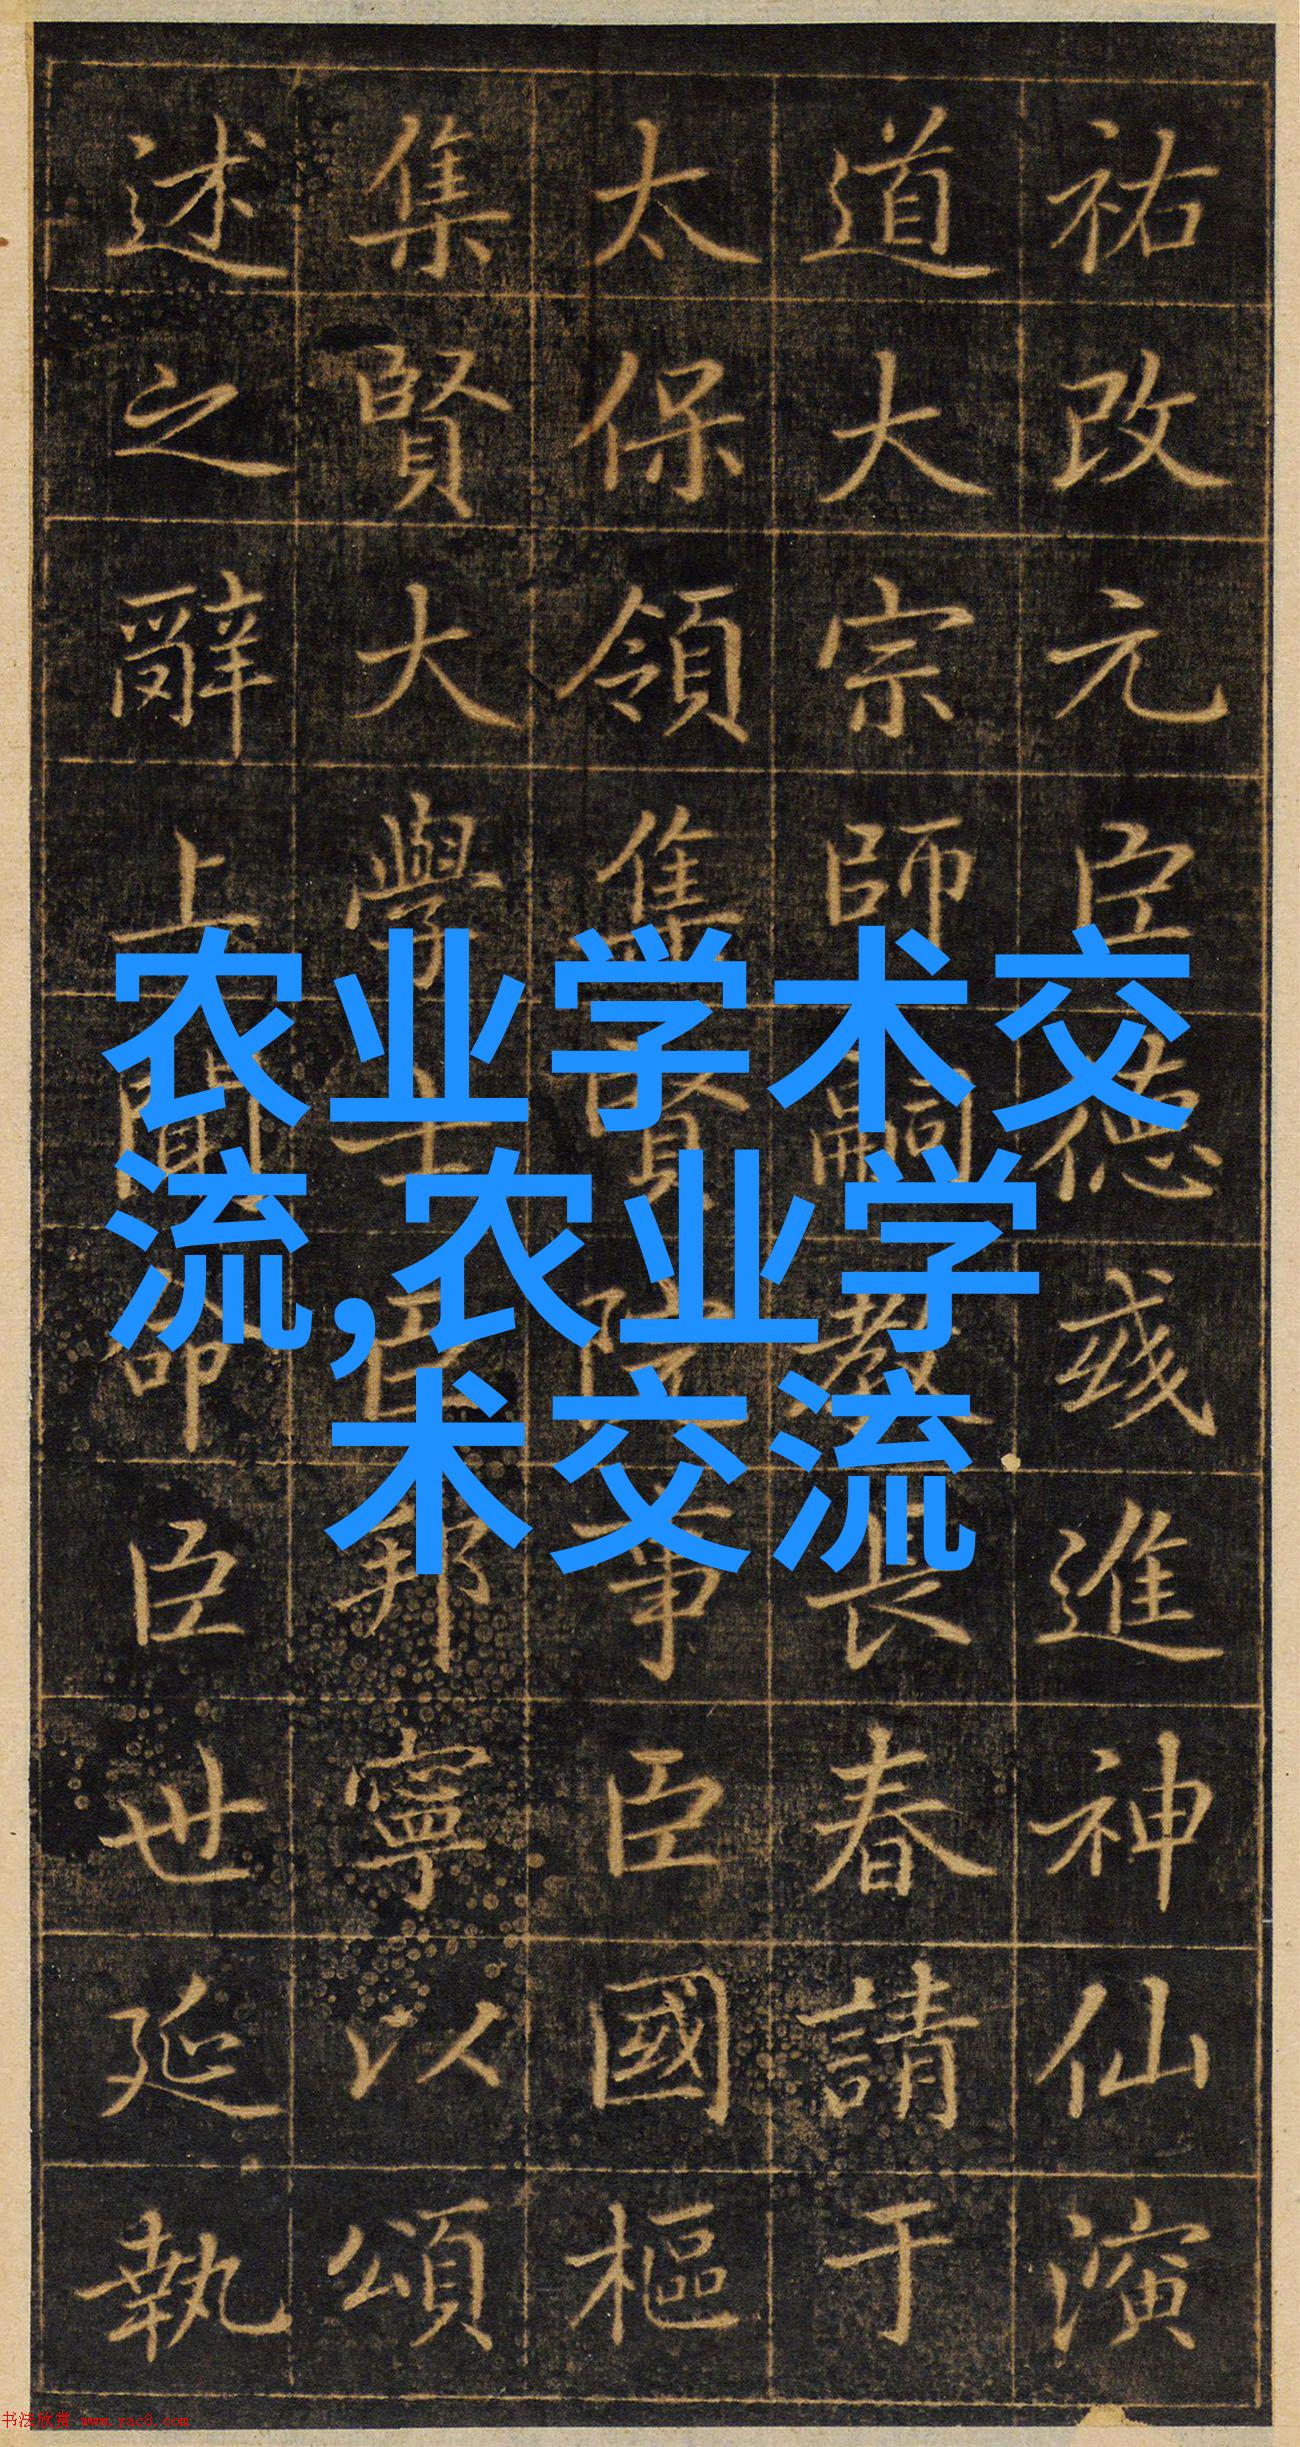 祐改元臣德彧進神仙演
道大宗師嗣教長春請于
太保領集賢院事臣國樞
集賢大學士臣邦寧以頌
述之辭上聞命臣世延執
农业学术交
流,农业学
术交流
书法欣赏 www.yac8.com